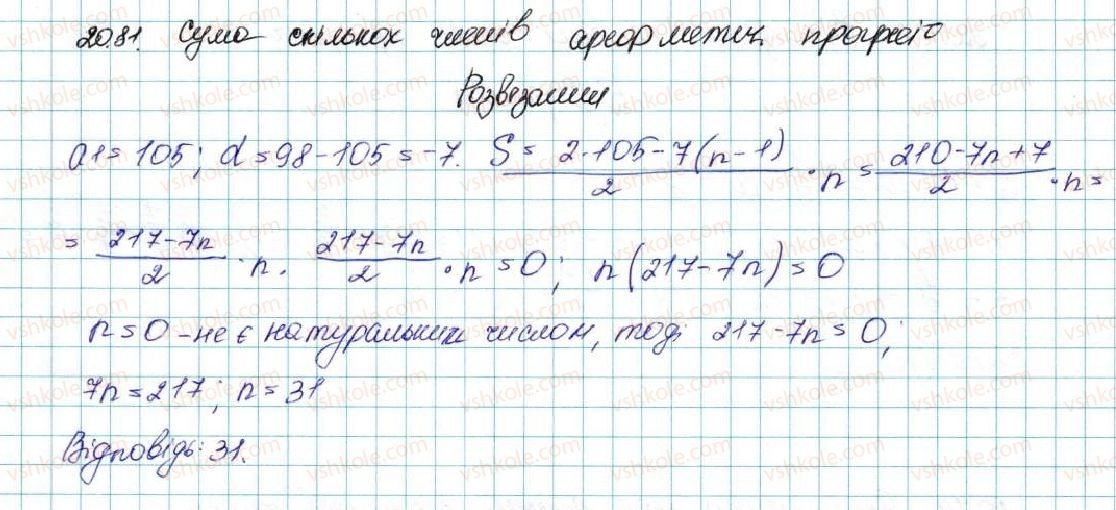 20.81. Сума скількох членів арифметич. прогресії
Розв'язання
a1 = 105; d = 98 - 105 = -7. S = (2·105 - 7(n - 1))/2 · n = (210 - 7n + 7)/2 · n =
= (217 - 7n)/2 · n. (217 - 7n)/2 · n = 0; n(217 - 7n) = 0
n = 0 - не є натуральним числом, тоді 217 - 7n = 0;
7n = 217; n = 31
Відповідь: 31.